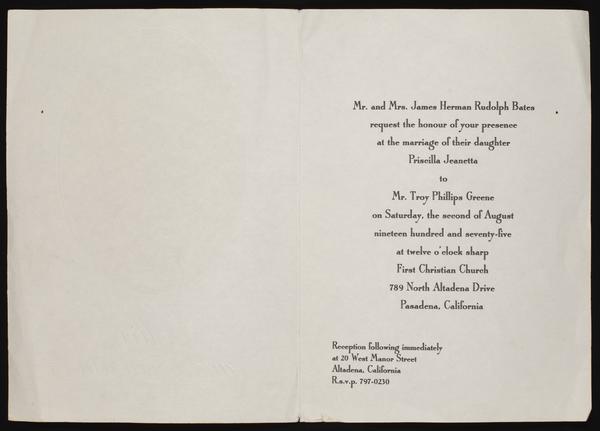 Mr. and Mrs. James Herman Rudolph Bates
request the honour of your presence
at the marriage of their daughter
Priscilla Jeanetta
to
Mr. Troy Phillips Greene
on Saturday, the second of August
nineteen hundred and seventy-five
at twelve o'clock sharp
First Christian Church
789 North Altadena Drive
Pasadena, California
Reception following immediately
at 20 West Manor Street
Altadena, California
R.s.v.p. 797-0230